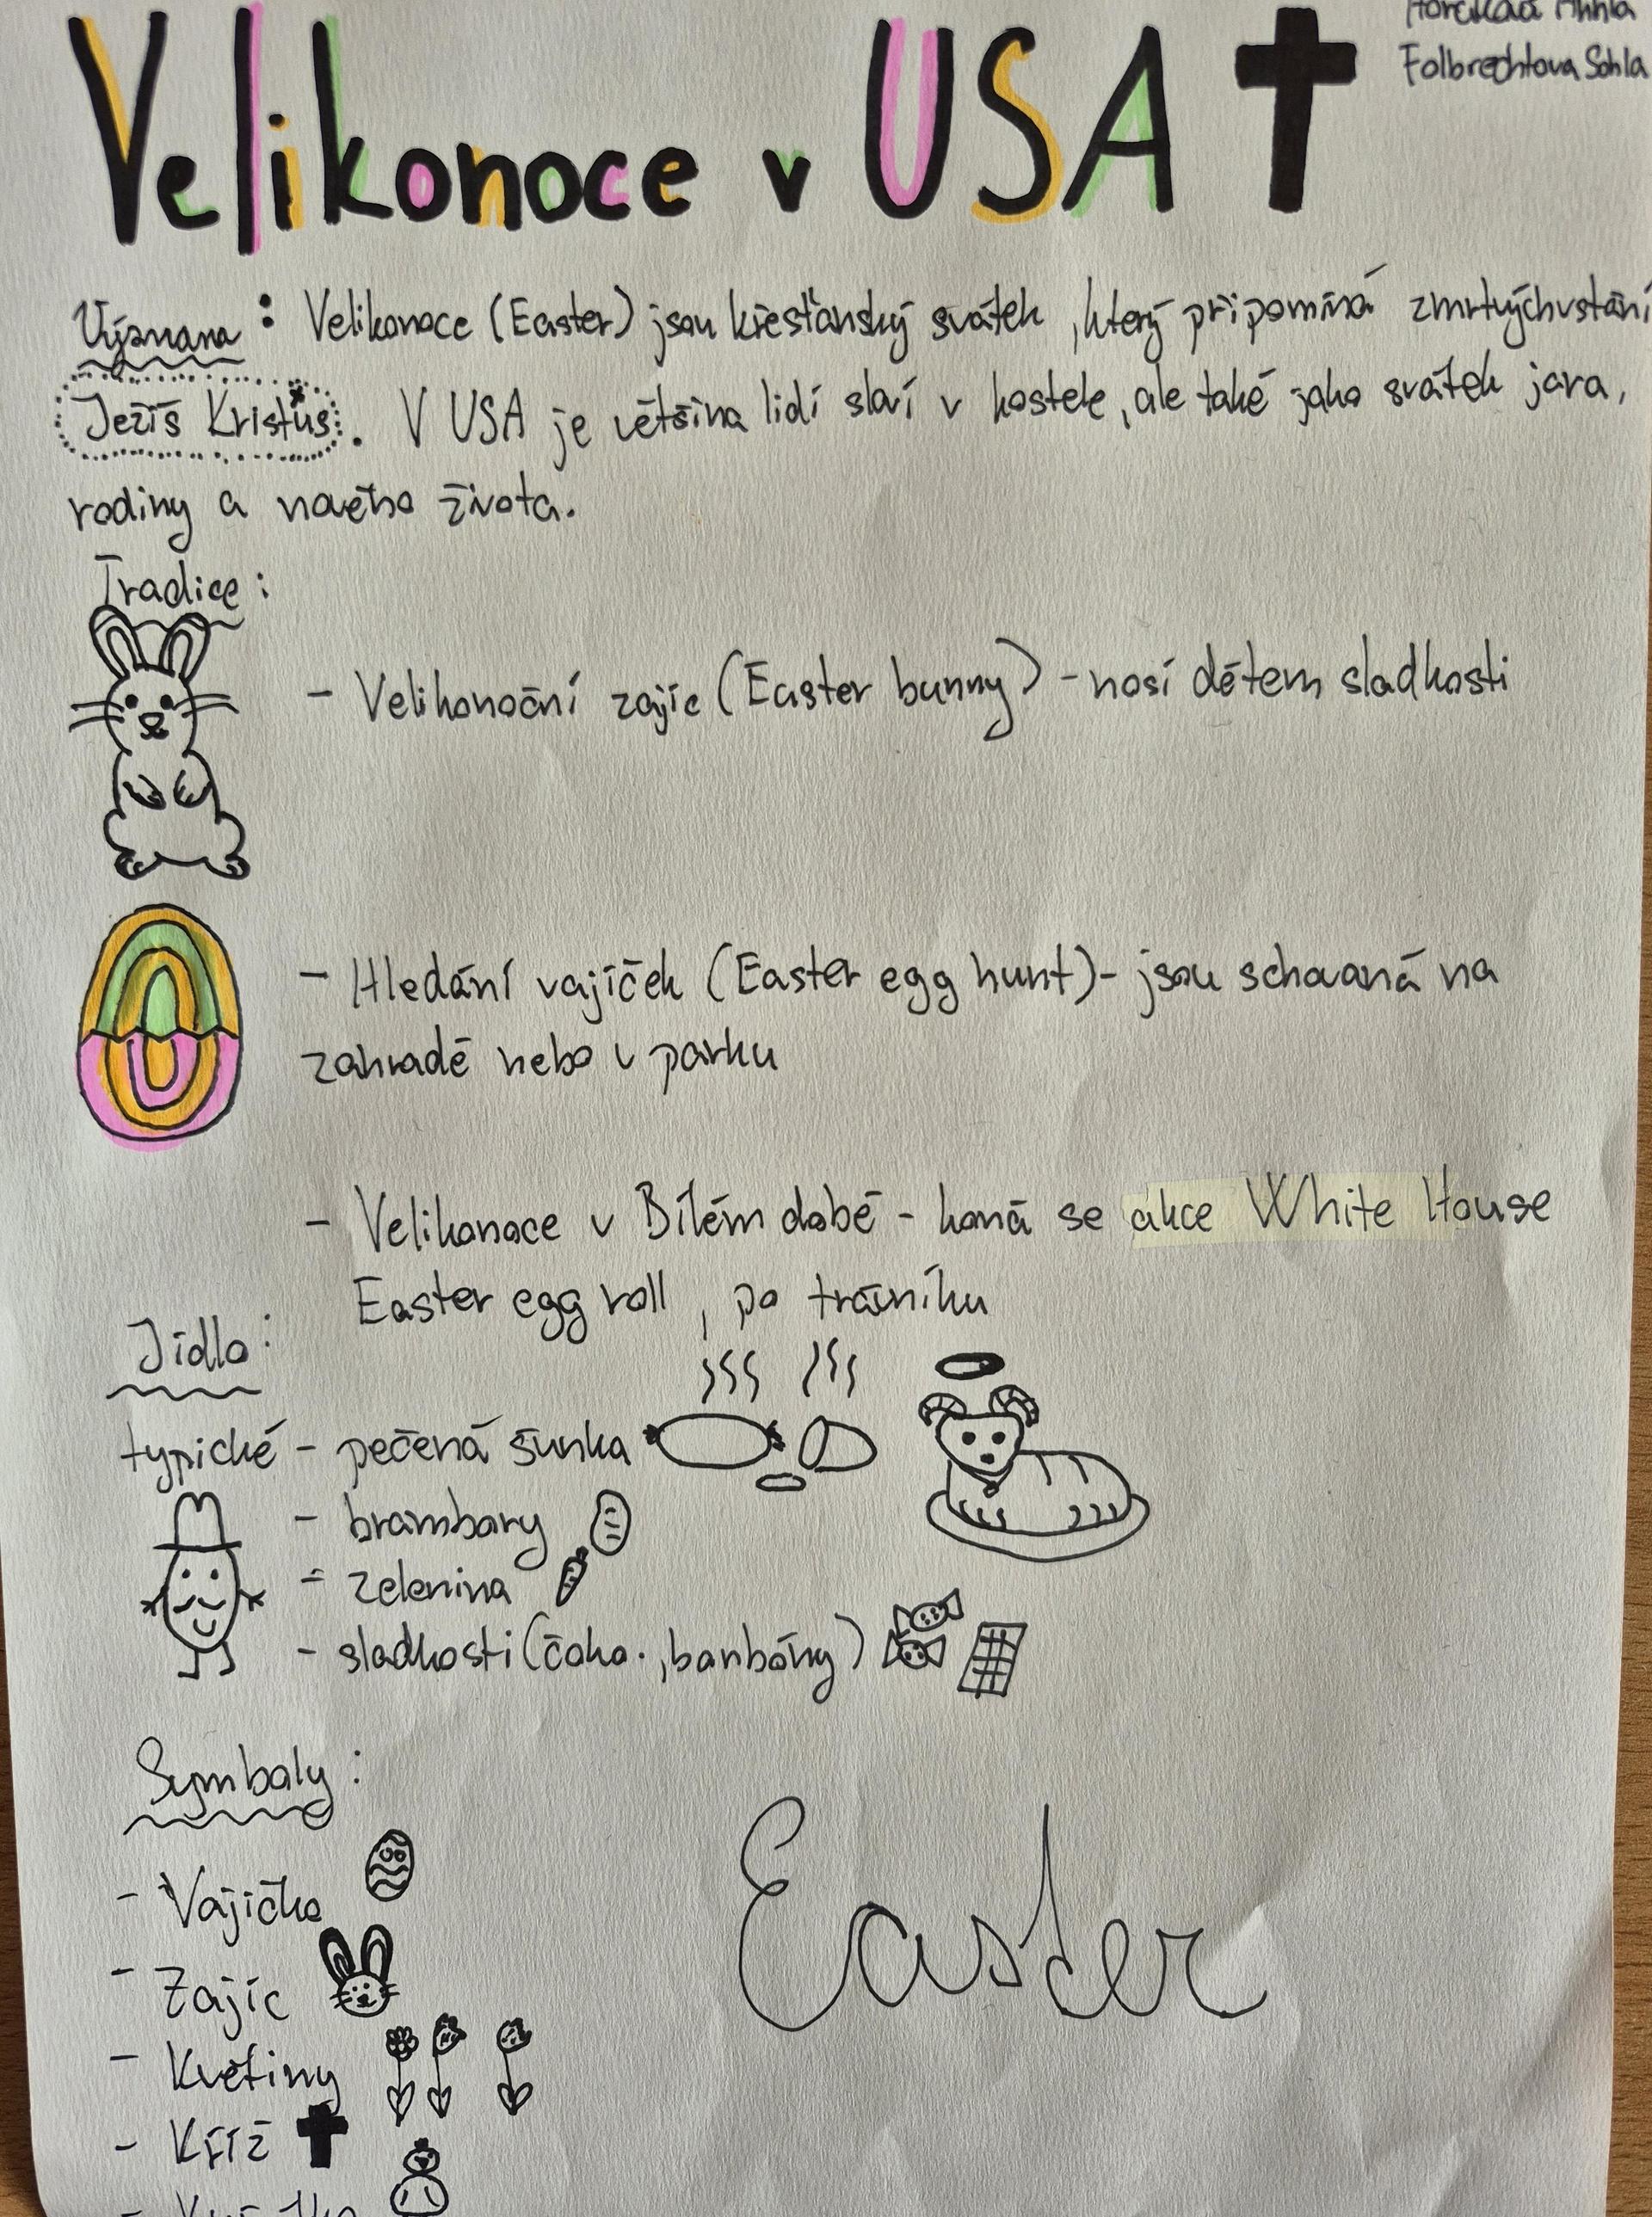 Folbrechtova Sohla
Velikonoce v USA
Význama : Velikonoce (Easter) jsou křesťanský svátek, který připomíná zmrtvýchvstání
Ježíš Kristus. V USA je většina lidí slaví v kostele, ale také jako svátek jara,
rodiny a nového života.
Tradice :
- Velikonoční zajíc (Easter bunny) - nosí dětem sladkosti
- Hledání vajíček (Easter egg hunt) - jsou schovaná na
zahradě nebo v parku
- Velikonoce v Bílém době - koná se akce White House
Easter egg roll, po trávníku
Jídlo :
typické - pečená šunka
- brambory
- zelenina
- sladkosti (čoko., banbóny)
Symboly :
- Vajíčko
- Zajíc
- Květiny
- Kříž
Easter